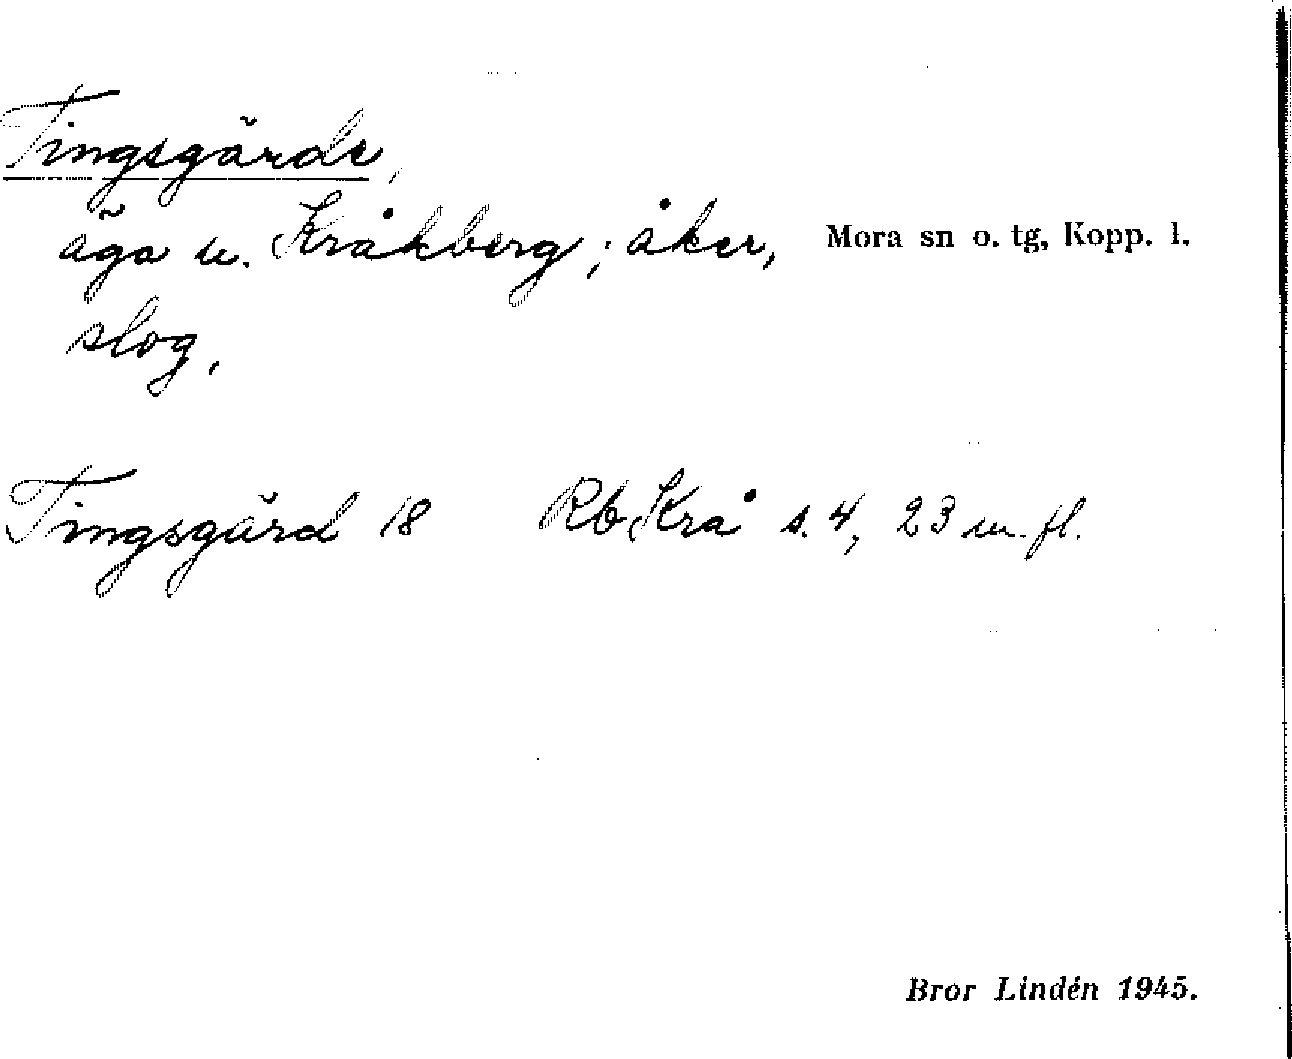 Tingsgärde,
äga u. Kråkberg; åker, Mora sn o. tg, Kopp. l.
slog.
Tingsgärd 18 Rb Krå s. 4, 23 m. fl.
Bror Lindén 1945.